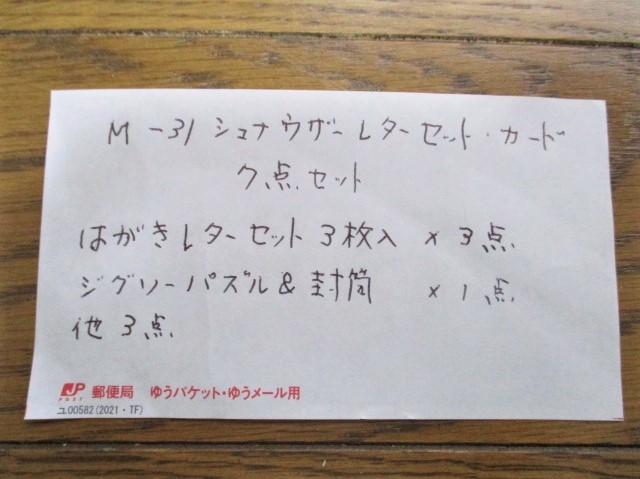 M-31 シュナウザーレターセット・カード
7点セット
はがきレターセット 3枚入 × 3点
ジグソーパズル&封筒 × 1点
他 3点
JP POST 郵便局 ゆうパケット・ゆうメール用
ユ00582(2021・TF)